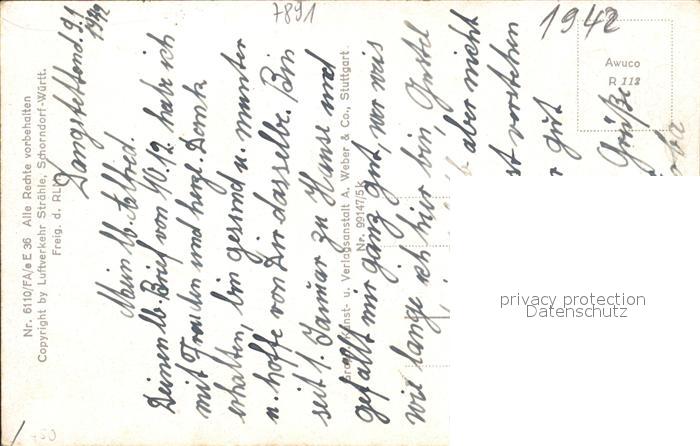 7891
1942
Nr. 6110/FA/e E 36 Alle Rechte vorbehalten
Copyright by Luftverkehr Strähle, Schorndorf-Württ.
Freig. d. RLM
Dangstetten d. 9.1
1942
Mein lb. Alfred.
Deinen lb. Brief von 10.12. habe ich
mit Freuden und herzl. Dank
erhalten, bin gesund u. munter
u. hoffe von Dir dasselbe. Bin
seit 1. Januar zu Hause und
gefällt mir ganz gut, nur weis
wie lange ich hier bin,
aber nicht
verstehen
gut
Grüße
Kunst- u. Verlagsanstalt A. Weber & Co., Stuttgart.
Nr. 99147/5k
Awuco
R 112
privacy protection
Datenschutz